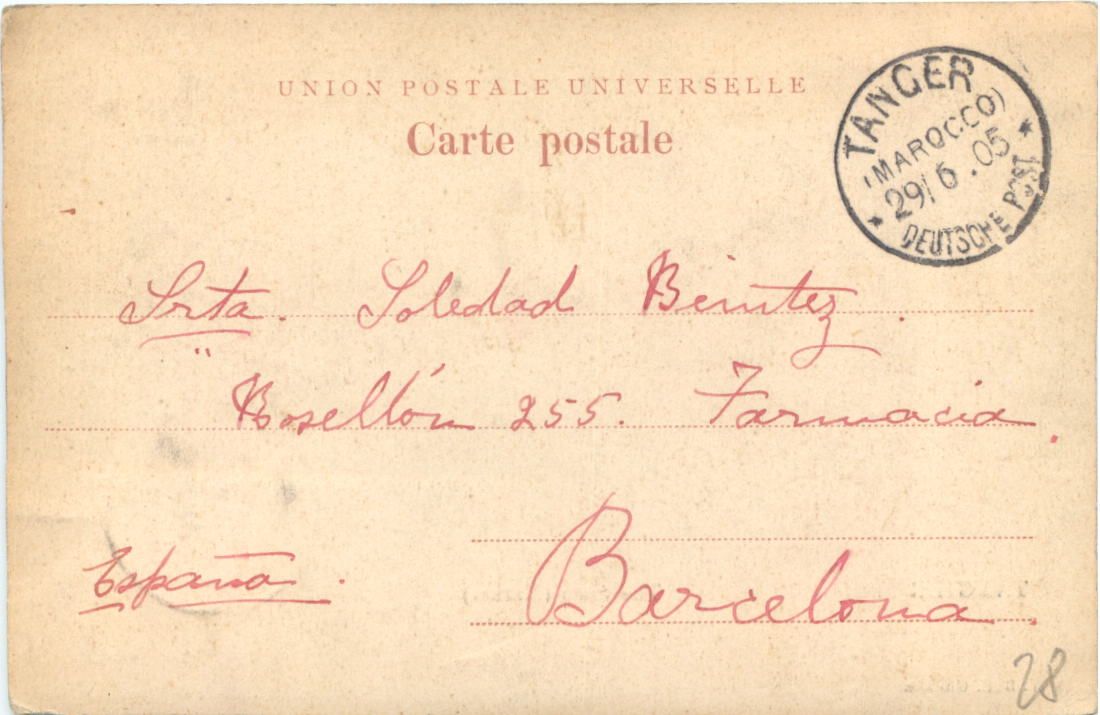 UNION POSTALE UNIVERSELLE
Carte postale
TANGER
(MAROCCO)
29/6.05
* DEUTSCHE POST *
Srta. Soledad Benitez.
Rosellón 255. Farmacia.
Barcelona.
España.
28